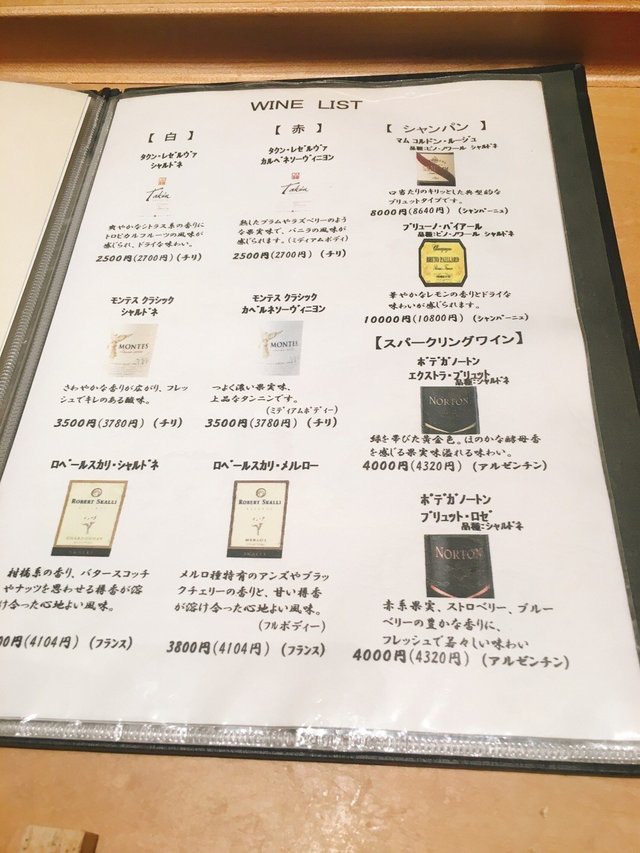 WINE LIST
【白】
タクン・レゼルヴァ
シャルドネ
Takun
爽やかなシトラス系の香りに
トロピカルフルーツの風味が
感じられ、ドライな味わい。
2500円(2700円)(チリ)
モンテス クラシック
シャルドネ
MONTES
さわやかな香りが広がり、フレッ
シュでキレのある酸味。
3500円(3780円)(チリ)
ロベールスカリ・シャルドネ
ROBERT SKALLI
CHARDONNAY
柑橘系の香り、バタースコッチ
やナッツを思わせる樽香が溶
け合った心地よい風味。
00円(4104円)(フランス)
【赤】
タクン・レゼルヴァ
カルベネソーヴィニヨン
Takun
熟したプラムやラズベリーのよう
な果実味で、バニラの風味が
感じられます。(ミディアムボディ)
2500円(2700円)(チリ)
モンテス クラシック
カベルネソーヴィニヨン
MONTES
つよく濃い果実味、
上品なタンニンです。
(ミディアムボディー)
3500円(3780円)(チリ)
ロベールスカリ・メルロー
ROBERT SKALLI
MERLOT
メルロ種特有のアンズやブラッ
クチェリーの香りと、甘い樽香
が溶け合った心地よい風味。
(フルボディー)
3800円(4104円)(フランス)
【シャンパン】
マム コルドン・ルージュ
品種:ピノ・ノワール シャルドネ
口当たりのキリッとした典型的な
ブリュットタイプです。
8000円(8640円)(シャンパーニュ)
ブリューノ・パイアール
品種:ピノ・ノワール シャルドネ
Champagne
BRUNO PAILLARD
華やかなレモンの香りとドライな
味わいが感じられます。
10000円(10800円)(シャンパーニュ)
【スパークリングワイン】
ボデガノートン
エクストラ・ブリュット
品種:シャルドネ
NORTON
緑を帯びた黄金色。ほのかな酵母香
を感じる果実味溢れる味わい。
4000円(4320円)(アルゼンチン)
ボデガノートン
ブリュット・ロゼ
品種:シャルドネ
NORTON
赤系果実、ストロベリー、ブルー
ベリーの豊かな香りに、
フレッシュで若々しい味わい
4000円(4320円)(アルゼンチン)